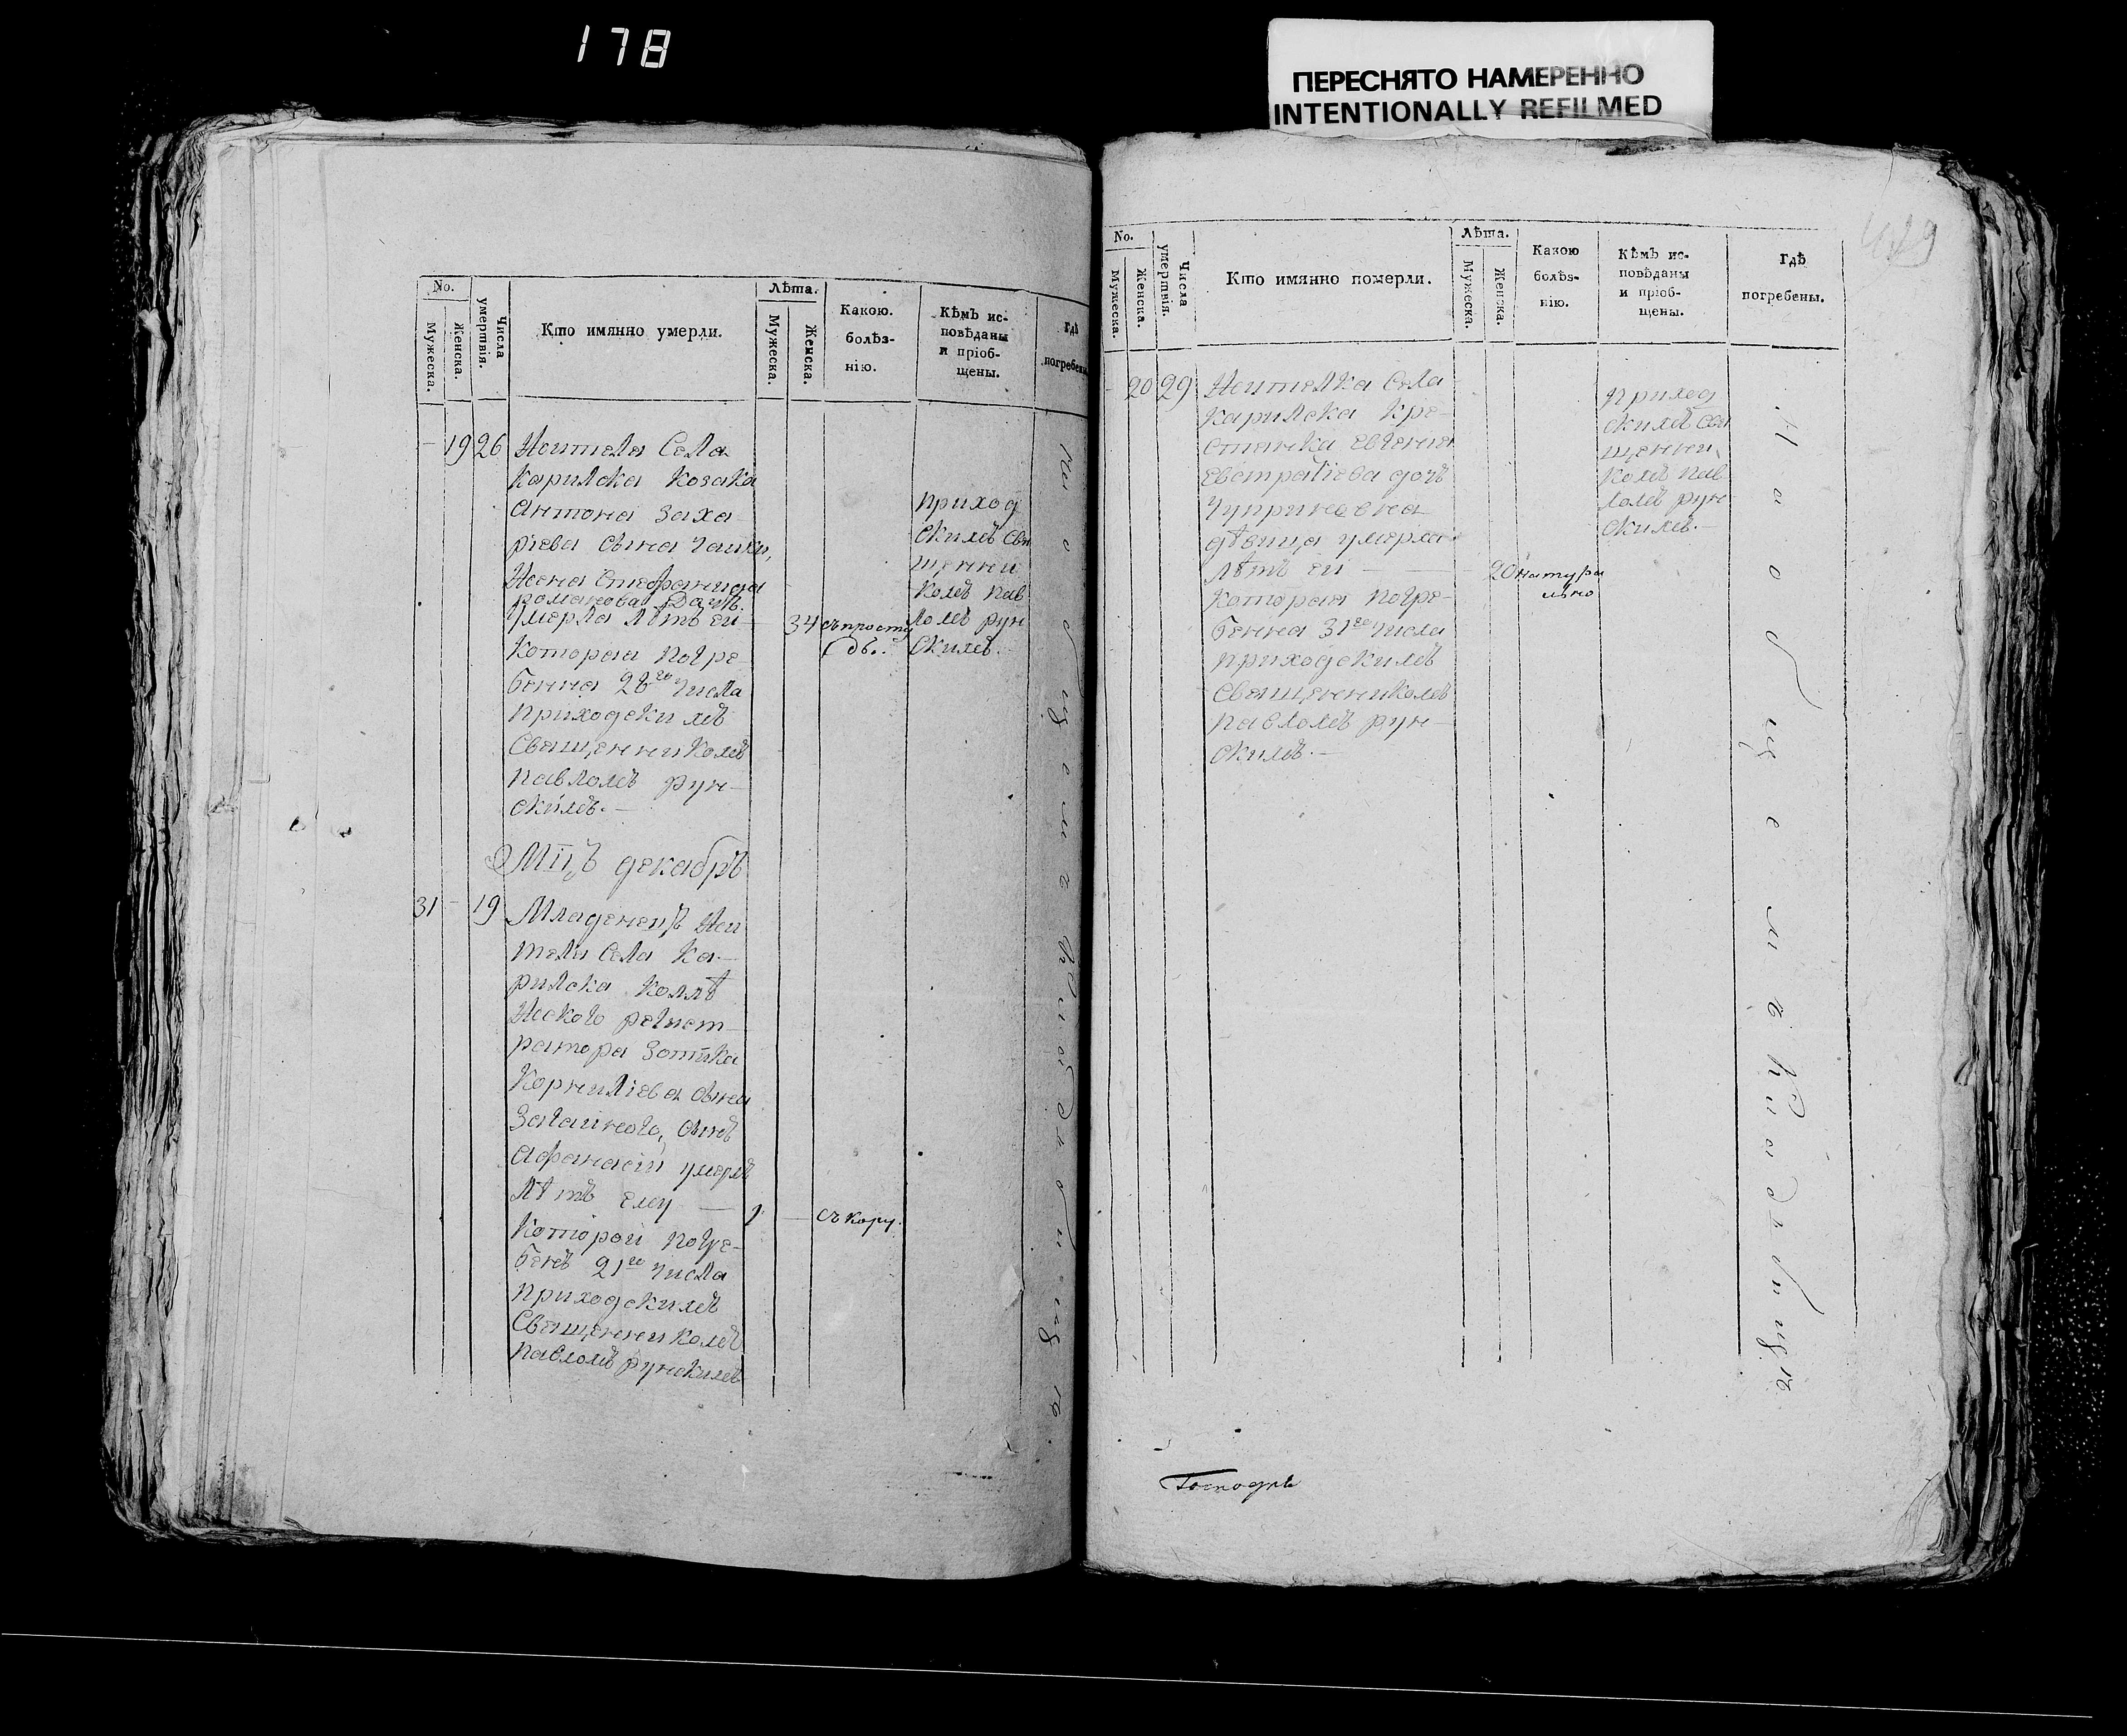 178
ПЕРЕСНЯТО НАМЕРЕННО
INTENTIONALLY REFILMED
No.
Мужеска.
Женска.
Числа умертвія.
Кто имянно умерли.
Лѣта.
Мужеска.
Женска.
Какою.
болѣз-
нію.
Кѣмъ ис-
повѣданы
и пріоб-
щены.
Гдѣ
погребены
19 26 Жителя Села
Карилска Козака
Антона Заха
ріева сына
Жена Стефанида
романова Дочь
умерла лѣтъ ей
34 съ просту
ды.
Которая погре
бенна 28го числа
приходскимъ
Священникомъ
павломъ рун-
скимъ.
приход
скимъ Свя
щенни
комъ пав
ломъ рун
скимъ.
на общемъ кладбищѣ
Мцъ декабръ
31 - 19 Младенецъ Жи
теля Села Ка-
рилска Коллѣ
жского регист-
ратора Зотика
Корниліева сына
сынъ
афанасій умеръ
лѣтъ ему — 1 — съ кору.
Которой погре-
бенъ 21го числа
приходскимъ
Священникомъ
павломъ рунскимъ
419
No.
Мужеска.
Женска.
Числа умертвія.
Кто имянно померли.
Лѣта.
Мужеска.
Женска.
Какою
болѣз-
нію.
Кѣмъ ис-
повѣданы
и пріоб-
щены.
Гдѣ
погребены.
20 29 Жителка Села
Карилска Кре-
стянка Евгенія
Евстратіева дочь
Чуприновна
дѣвица умерла
лѣтъ ей — 20 натура
льно
Которая погре-
бенна 31го числа
приходскимъ
Священникомъ
павломъ рун-
скимъ.
приход
скимъ Свя
щенни
комъ пав
ломъ рун
скимъ.
На общемъ кладбищѣ